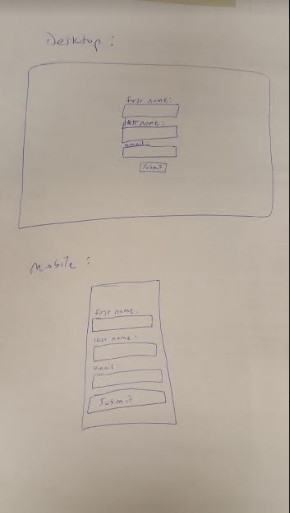 Desktop :
first name:
last name:
email
Submit
Mobile :
first name:
last name:
email
Submit